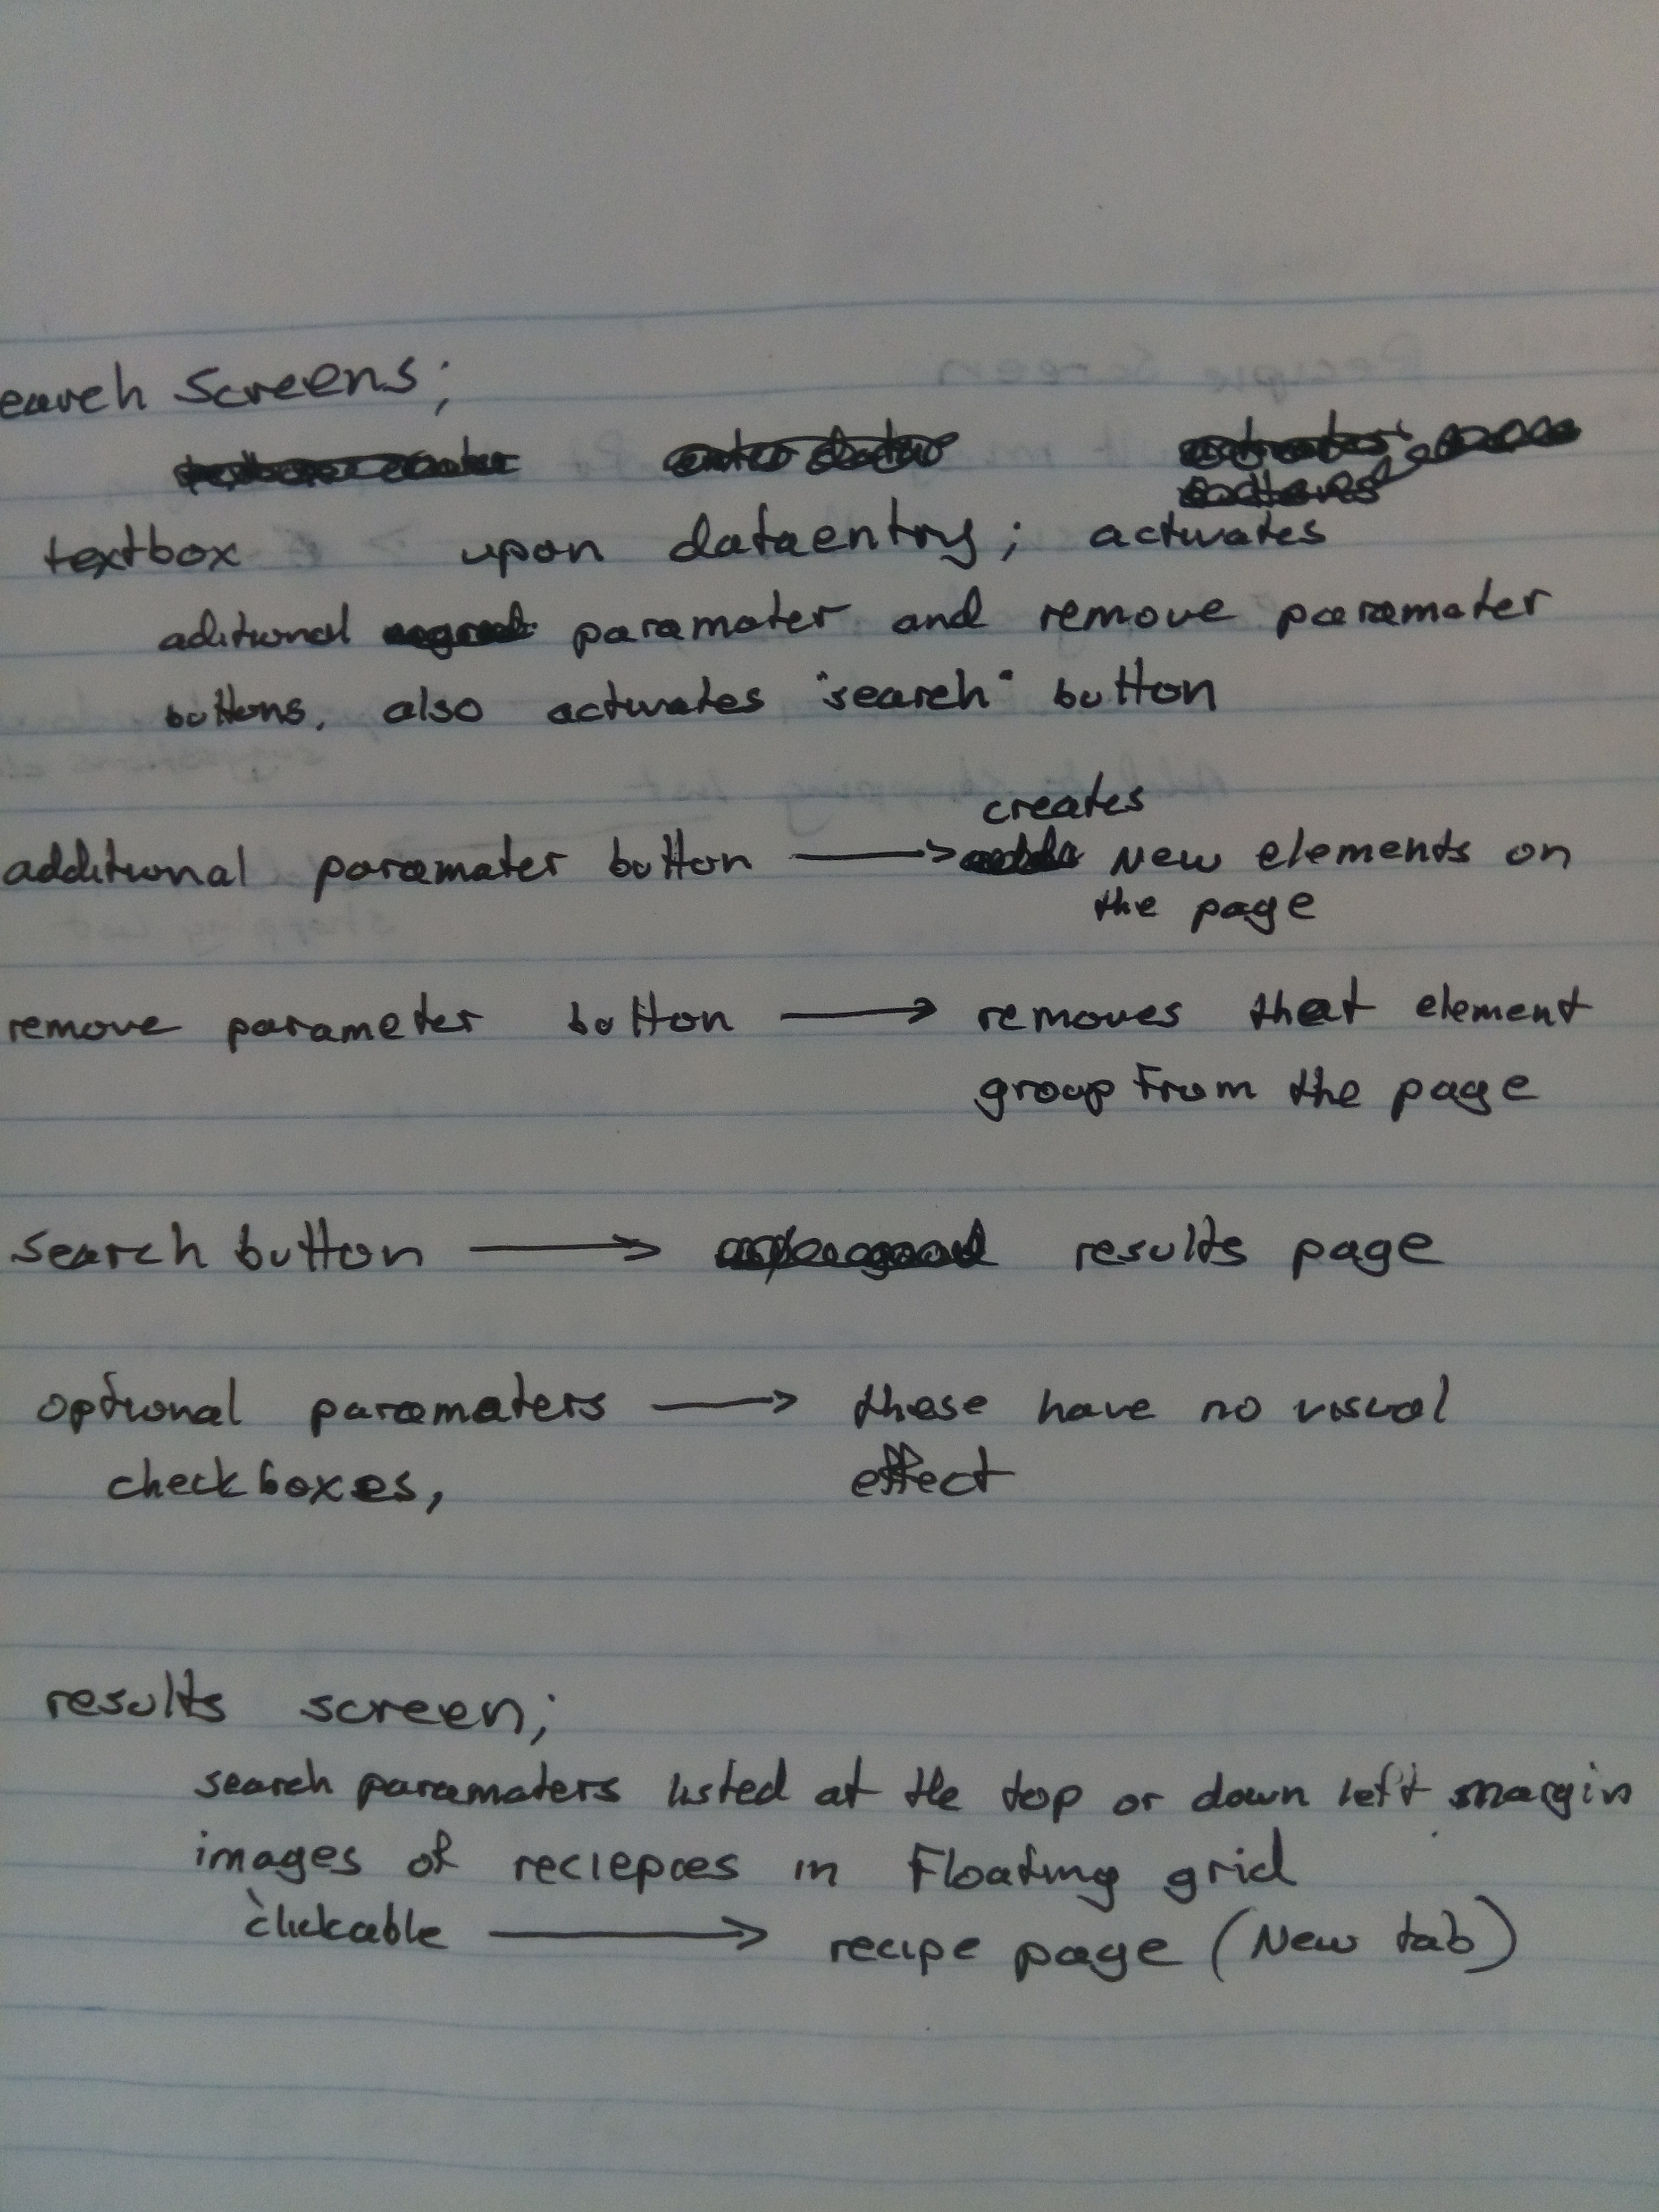 earch Screens;
textbox upon dataentry; activates
aditional paramater and remove paramater
buttons, also activates "search" button
creates
additional paramater button → New elements on
the page
remove parameter button → removes that element
group from the page
search button → results page
optional paramaters → these have no visual
checkboxes, effect
results screen;
search paramaters listed at the top or down left margin
images of reciepces in Floating grid
clickable → recipe page (New tab)